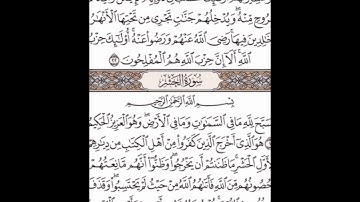 بِرُوحٍ مِّنْهُ ۖ وَيُدْخِلُهُمْ جَنَّاتٍ تَجْرِي مِن تَحْتِهَا الْأَنْهَارُ
خَالِدِينَ فِيهَا رَضِيَ اللَّهُ عَنْهُمْ وَرَضُوا عَنْهُ ۚ أُولَٰئِكَ حِزْبُ
اللَّهِ ۚ أَلَا إِنَّ حِزْبَ اللَّهِ هُمُ الْمُفْلِحُونَ ٢٢
سُورَةُ الْحَشْرِ
بِسْمِ اللَّهِ الرَّحْمَٰنِ الرَّحِيمِ
سَبَّحَ لِلَّهِ مَا فِي السَّمَاوَاتِ وَمَا فِي الْأَرْضِ ۖ وَهُوَ الْعَزِيزُ الْحَكِيمُ
هُوَ الَّذِي أَخْرَجَ الَّذِينَ كَفَرُوا مِنْ أَهْلِ الْكِتَابِ مِن دِيَارِهِمْ
لِأَوَّلِ الْحَشْرِ ۚ مَا ظَنَنتُمْ أَن يَخْرُجُوا ۖ وَظَنُّوا أَنَّهُم مَّانِعَتُهُمْ
حُصُونُهُم مِّنَ اللَّهِ فَأَتَاهُمُ اللَّهُ مِنْ حَيْثُ لَمْ يَحْتَسِبُوا ۖ وَقَذَفَ